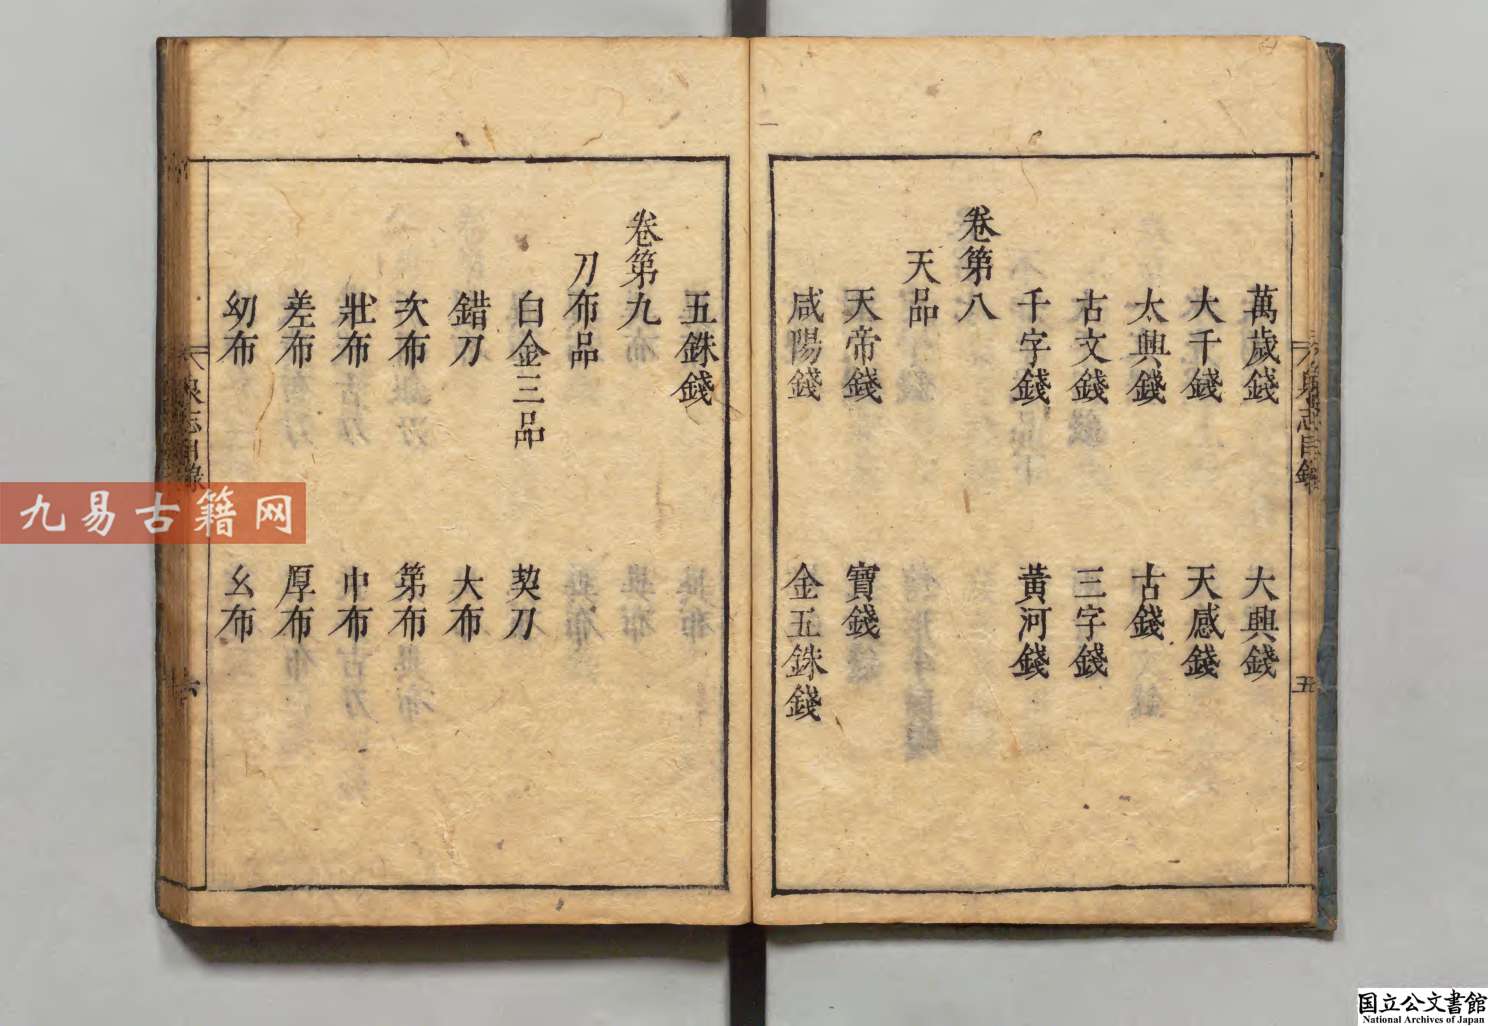 萬歲錢　大興錢
大千錢　天感錢
太興錢　古錢
古文錢　三字錢
千字錢　黃河錢
卷第八
天品
天帝錢　寶錢
咸陽錢　金五銖錢
五銖錢
卷第九
刀布品
白金三品　契刀
錯刀　大布
次布　第布
壯布　中布
差布　厚布
幼布　幺布
泉志目錄　五
泉志目錄　六
九易古籍网
国立公文書館
National Archives of Japan